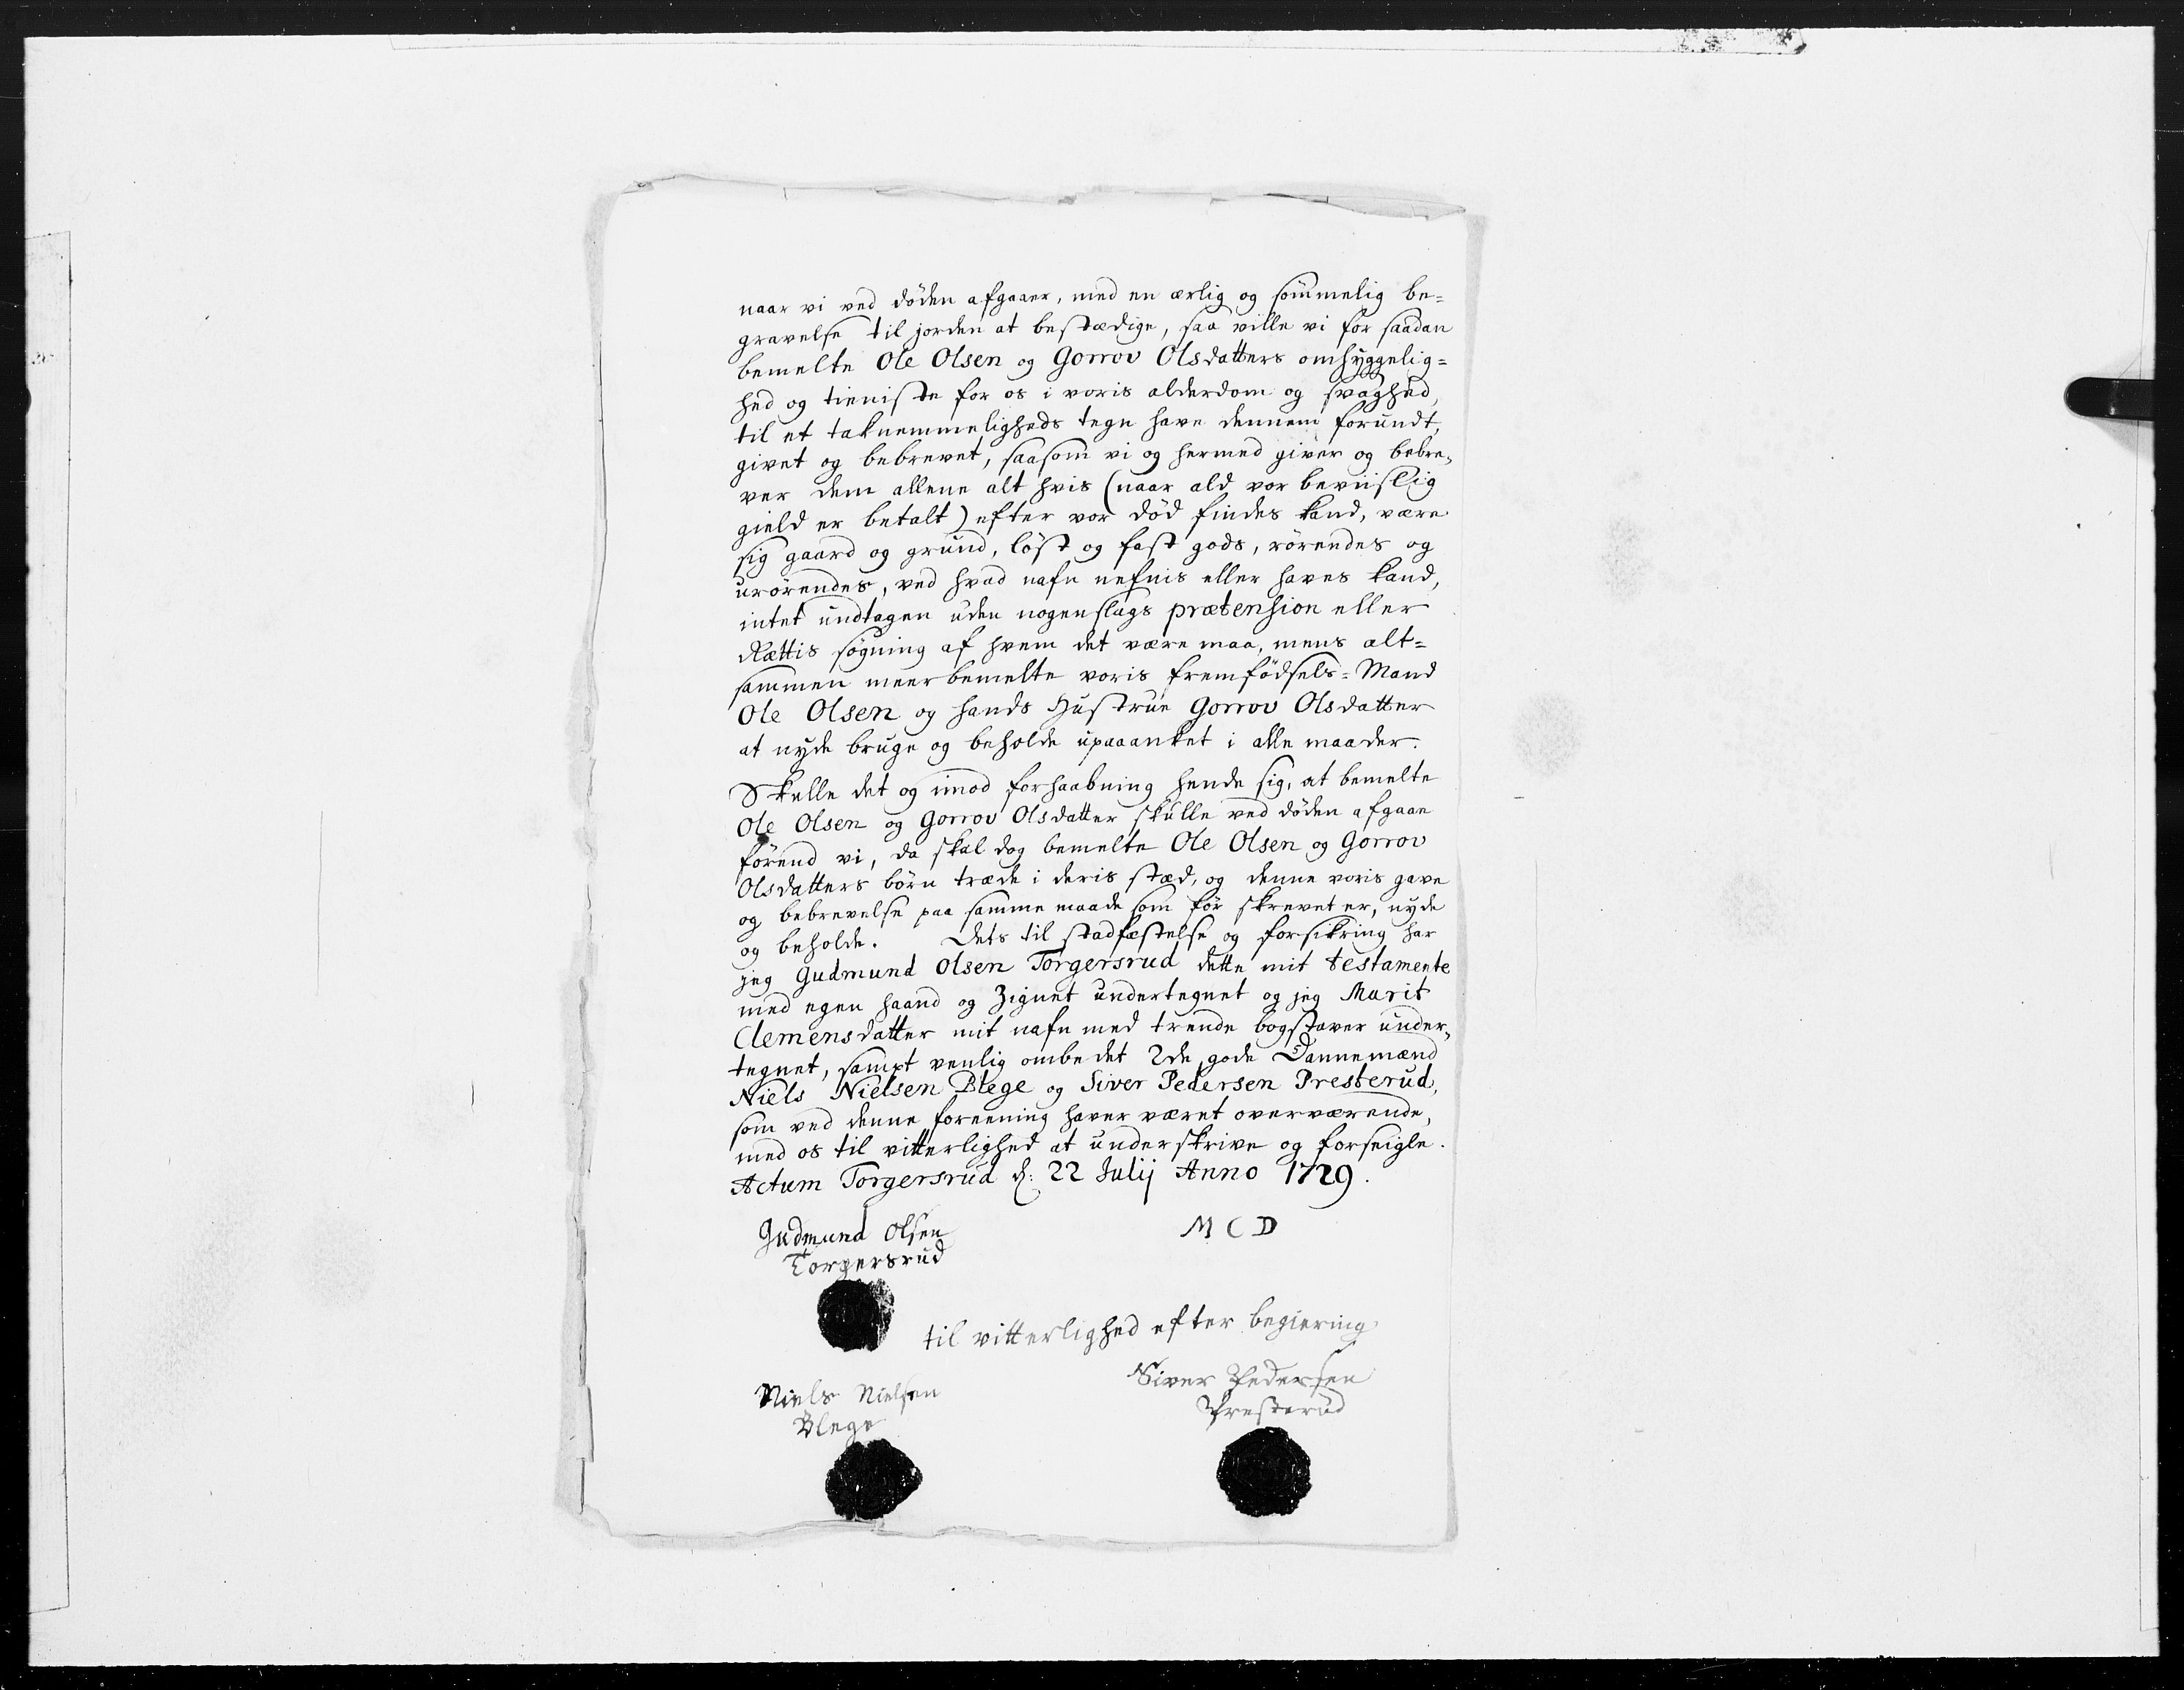 naar vi ved döden afgaaer, med en ærlig og sömmelig be=
gravelse til jorden at bestædige, saa ville vi for saadan
bemelte Ole Olsen og Gorrov Olsdatters omhyggelig=
hed og tieniste for os i voris alderdom og svaghed,
til et taknemmeligheds tegn have dennem forundt,
givet og bebrevet, saasom vi og hermed giver og bebre,
ver dem allene alt hvis (naar ald vor beviislig
gield er betalt) efter vor död findes kand, være
sig gaard og grund, löst og fast gods, rörendes og
urörendes, ved hvad nafn nefnis eller haves kand,
intet undtagen uden nogenslags prætension eller
Rættis sögning af hvem det være maa, mens alt=
sammen meerbemelte voris fremfödsels=Mand
Ole Olsen og hands Hustrue Gorrov Olsdatter
at nyde bruge og beholde upaaanket i alle maader.
Skulle det og imod forhaabning hende sig, at bemelte
Ole Olsen og Gorrov Olsdatter skulle ved döden afgaae
förend vi, da skal dog bemelte Ole Olsen og Gorrov
Olsdatters börn træde i deris stæd, og denne voris gave
og bebrevelse paa samme maade som för skrevet er, nyde
og beholde. Dets til stadfæstelse og forsikring har
jeg Gudmund Olsen Torgersrud dette mit testamente
med egen haand og Zignet undertegnet og jeg Marit
Clemensdatter mit nafn med trende bogstaver under,
tegnet, sampt venlig ombedet 2de gode Dannemænd
Niels Nielsen Blege og Siver Pedersen Presterud,
som ved denne foreening haver været overværende,
med os til vitterlighed at underskrive og forseigle.
Actum Torgersrud d: 22 Julij Anno 1729.
Gudmund Olsen M C D
Torgersrud
til vitterlighed efter begiering
Niels Nielsen Siver Pedersen
Blege Presterud